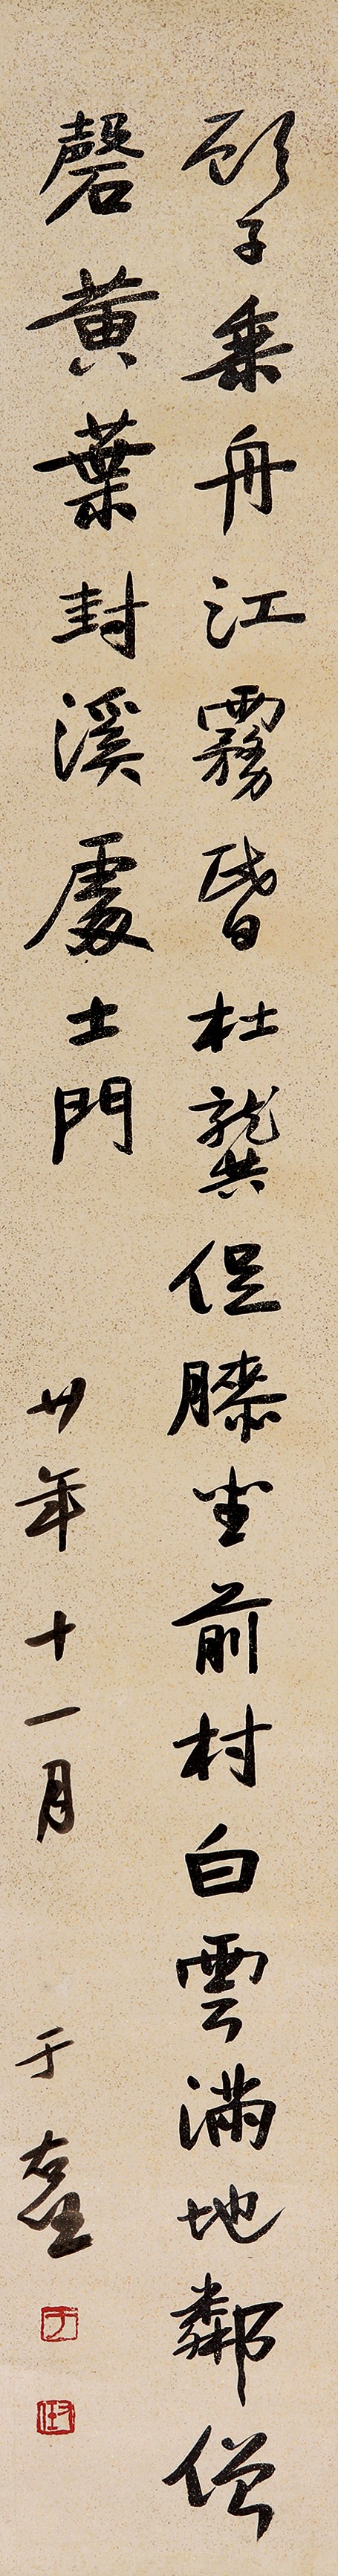 顾子乘舟江霧昏杜龔促膝坐前村白雲滿地鄰僧
磬黄葉封溪處士門
廿年十一月
于右任
于
右任